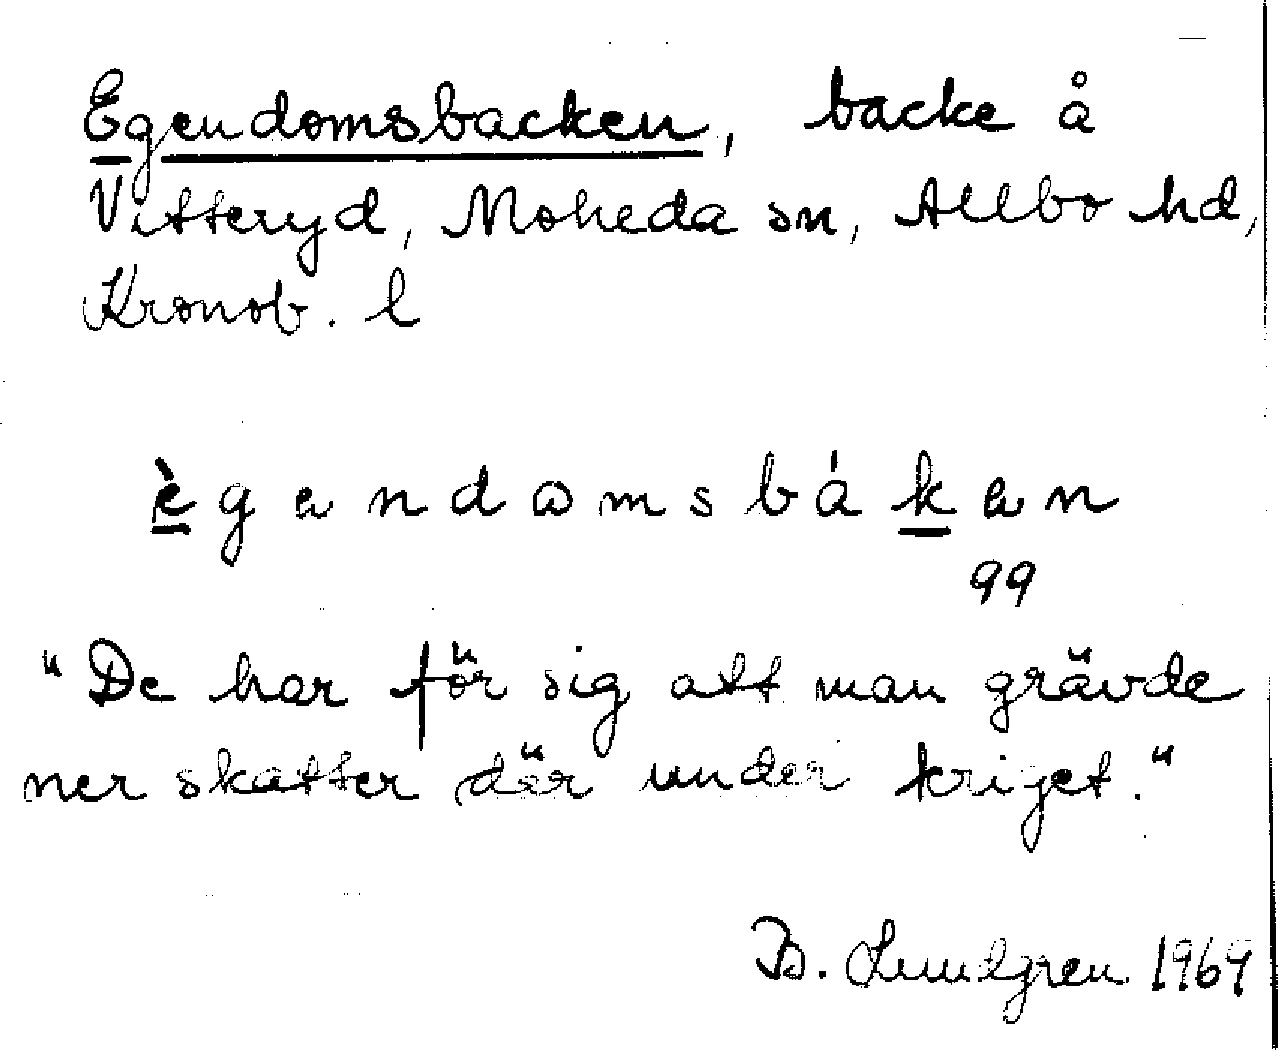 Egendomsbacken, backe å
Vitteryd, Moheda sn, Allbo hd,
Kronob. l
ègendomsbákan
99
"De har för sig att man grävde
ner skatter där under kriget."
B. Lundgren 1969